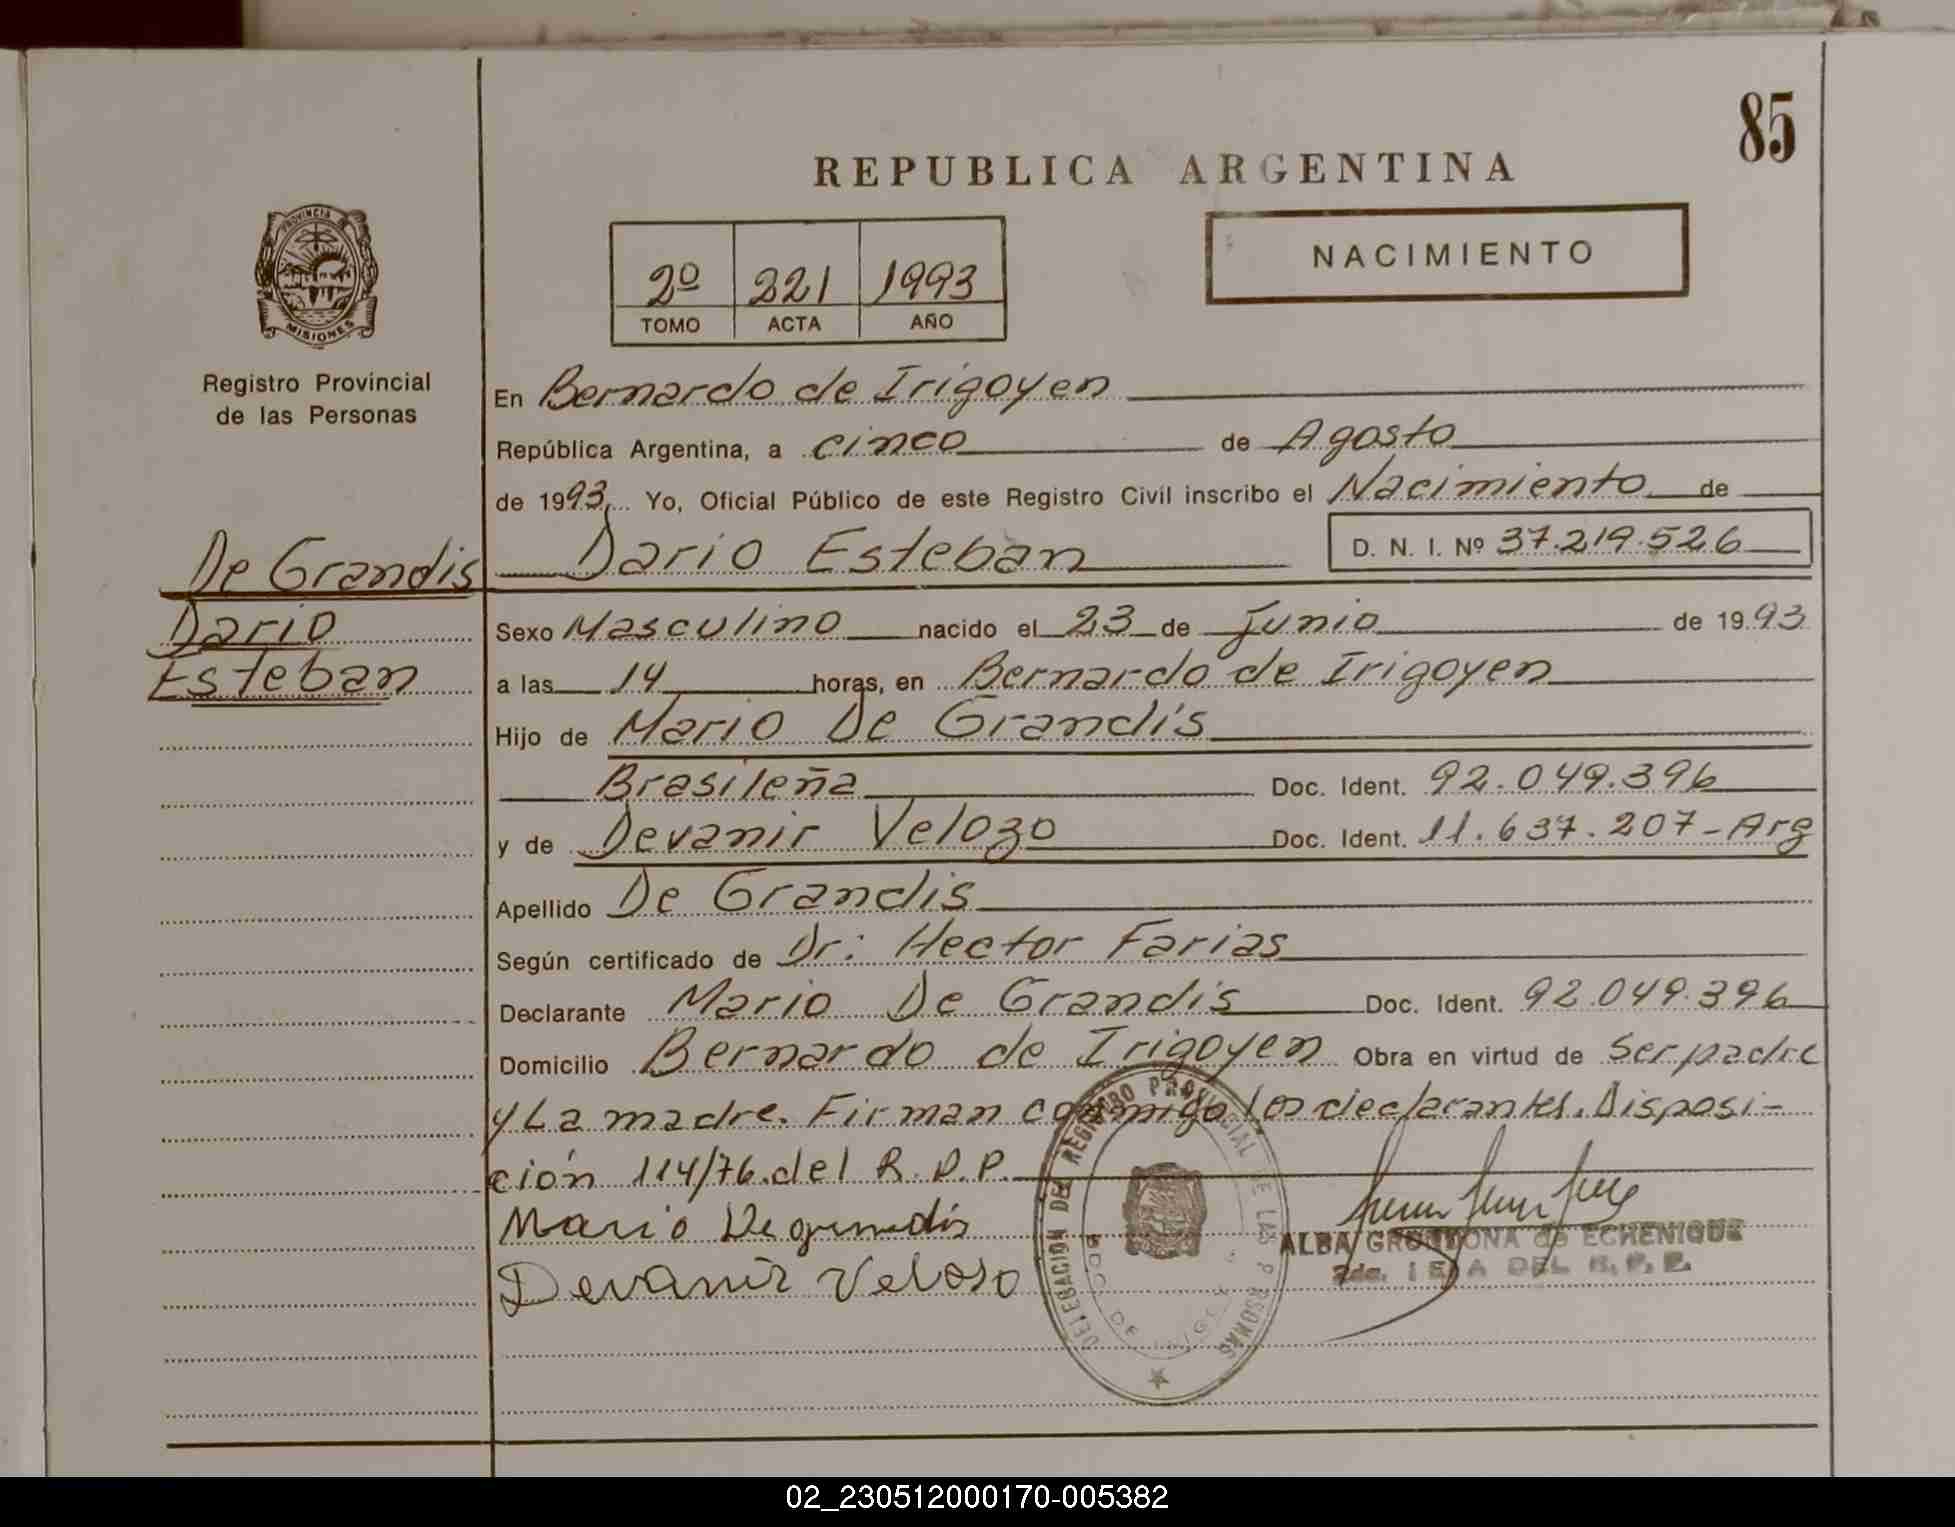 85
REPUBLICA ARGENTINA
PROVINCIA
MISIONES
Registro Provincial
de las Personas
2º 221 1993
TOMO ACTA AÑO
NACIMIENTO
En Bernardo de Irigoyen
República Argentina, a cinco de Agosto
de 1993 Yo, Oficial Público de este Registro Civil inscribo el Nacimiento de
Dario Esteban D. N. I. Nº 37.219.526
De Grandis
Dario
Esteban
Sexo Masculino nacido el 23 de Junio de 1993
a las 14 horas, en Bernardo de Irigoyen
Hijo de Mario De Grandis
Brasileña Doc. Ident. 92.049.396
y de Devanir Velozo Doc. Ident. 11.637.207-Arg
Apellido De Grandis
Según certificado de Dr: Hector Farias
Declarante Mario De Grandis Doc. Ident. 92.049.396
Domicilio Bernardo de Irigoyen Obra en virtud de Ser padre
y La madre. Firman conmigo los declarantes. Disposi-
ción 114/76.del R.P.P.
Mario De grandis
Devanir Veloso
DELEGACION DEL REGISTRO PROVINCIAL DE LAS PERSONAS
ALBA GRONDONA de ECHENIQUE
DEL R.P.P.
02_230512000170-005382